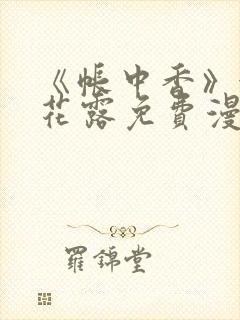 《帐中香》
花露免費漫
羅錦堂